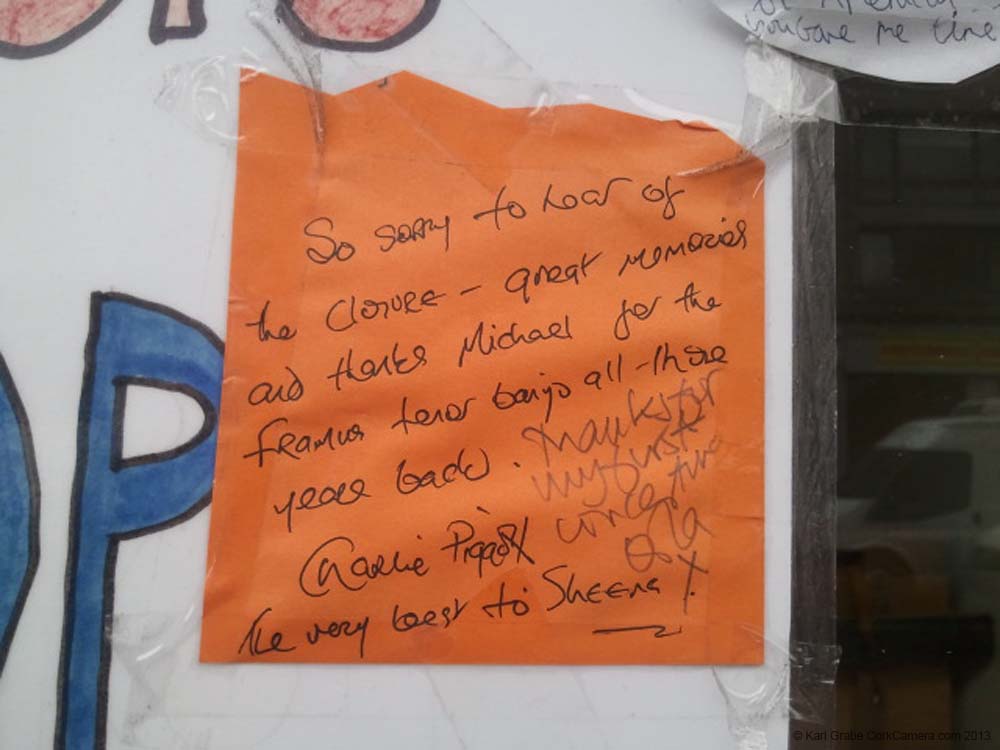 you Gave me
So sorry to hear of
the closure - great memories
and thanks Michael for the
Framus tenor banjo all those
years back.
Thanks for
my first
concertina
Ola
Charlie Piggott X
The very best to Sheena!
P
© Karl Grabe CorkCamera.com 2013